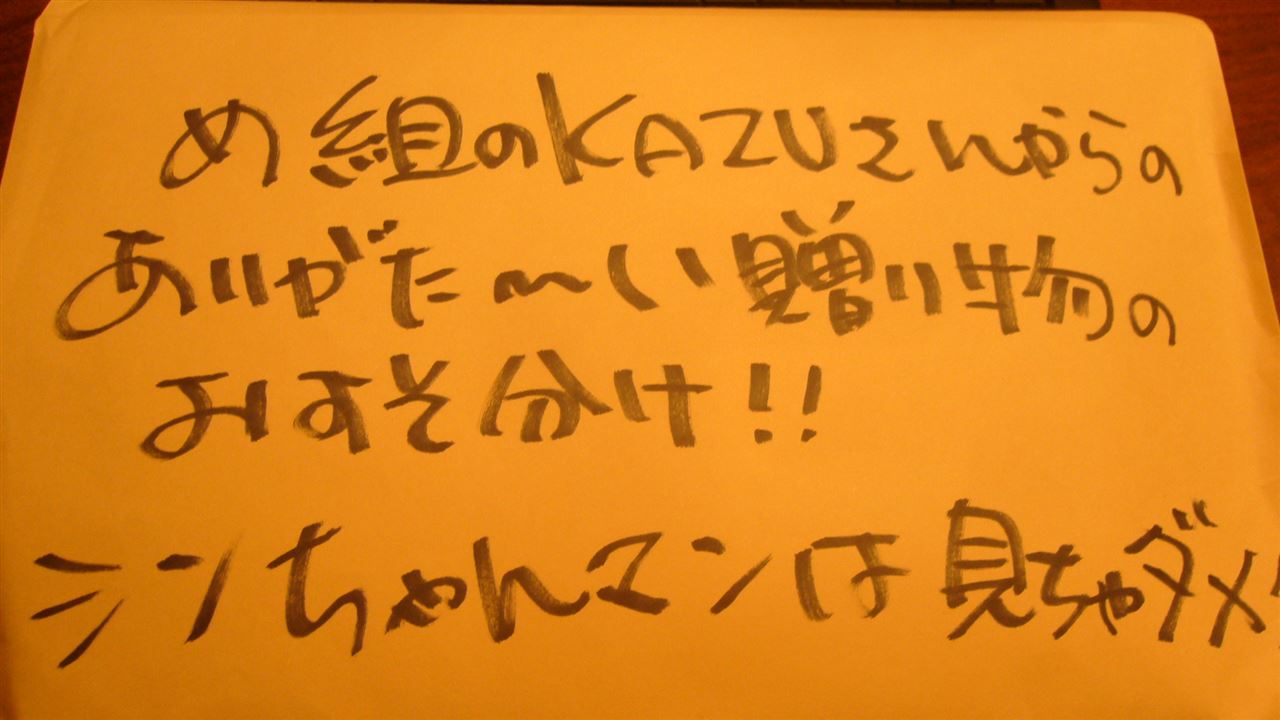 め組のKAZUさんからの
ありがた〜い贈り物の
おすそ分け!!
シンちゃんマンは見ちゃダメ!